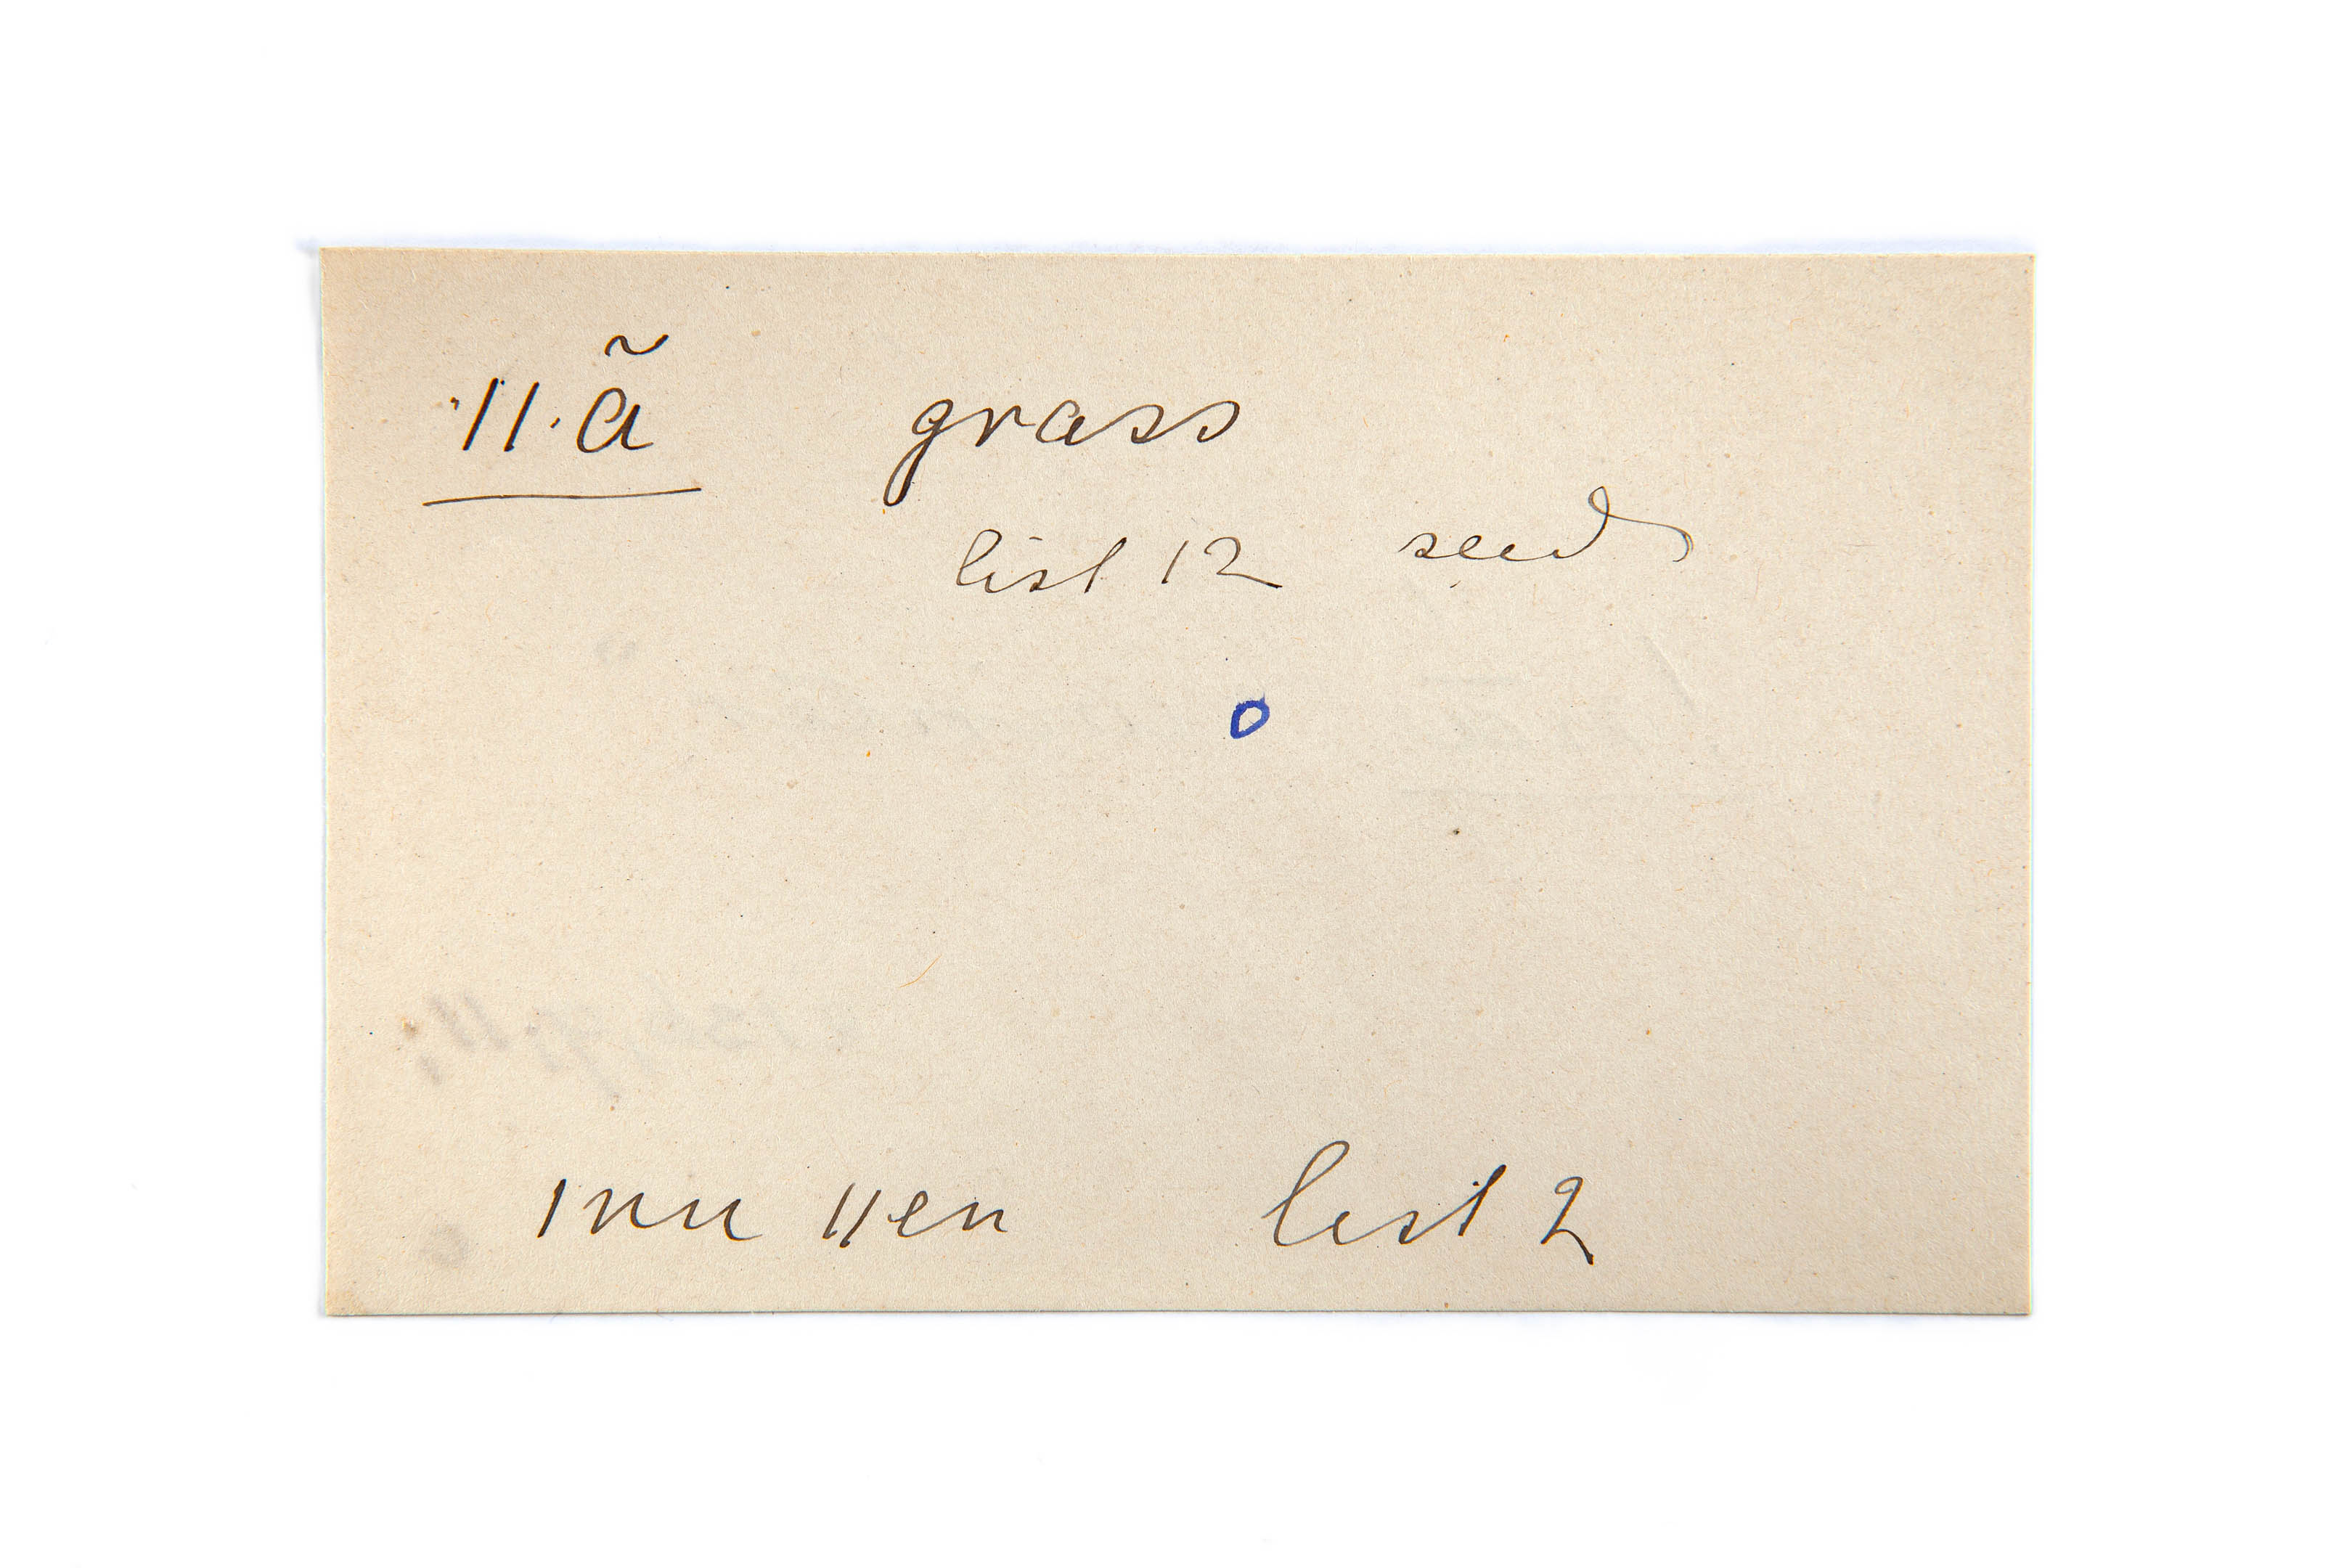 ˈ‖·ã grass
list 12 seeds
o
ǀnu ǁen list 2